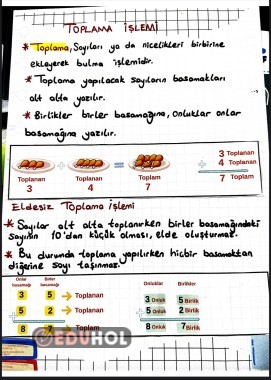 TOPLAMA İŞLEMİ
* Toplama, Sayıları ya da nicelikleri birbirine
ekleyerek bulma işlemidir.
* Toplama yapılacak sayıların basamakları
alt alta yazılır.
* Birlikler birler basamağına, Onluklar onlar
basamağına yazılır.
+ =
3 Toplanan
4 Toplanan
+
7 Toplam
Toplanan Toplanan Toplam
3 4 7
Eldesiz Toplama işlemi
* Sayılar alt alta toplanırken birler basamağındaki
sayının 10'dan küçük olması, elde oluşturmaz.
* Bu durumda toplama yapılırken hiçbir basamaktan
diğerine sayı taşınmaz.
Onlar basamağı Birler basamağı
3 5 → Toplanan
5 2 → Toplanan
+
8 7 → Toplam
Onluklar Birlikler
3 Onluk 5 Birlik
5 Onluk 2 Birlik
+
8 Onluk 7 Birlik
EDUHOL